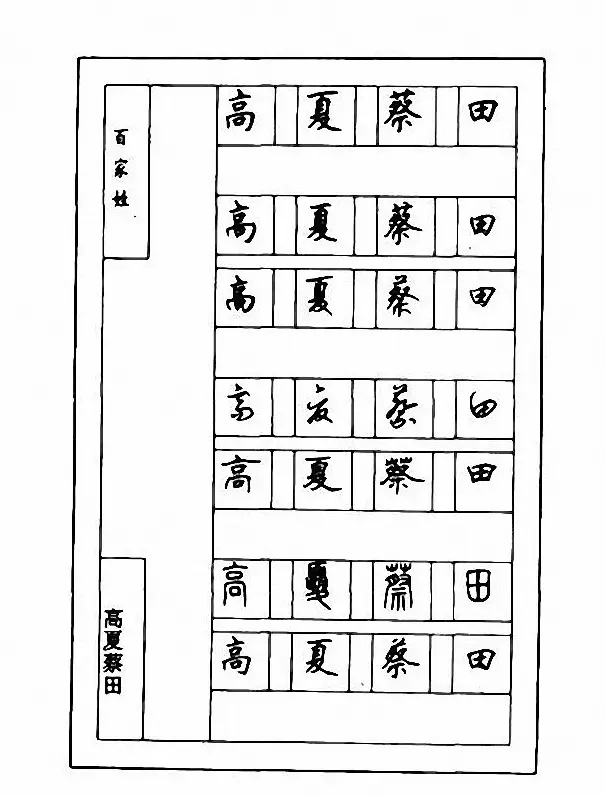 百家姓
高夏蔡田
高 夏 蔡 田
高 夏 蔡 田
高 夏 蔡 田
高 夏 蔡 田
高 夏 蔡 田
高 夏 蔡 田
高 夏 蔡 田